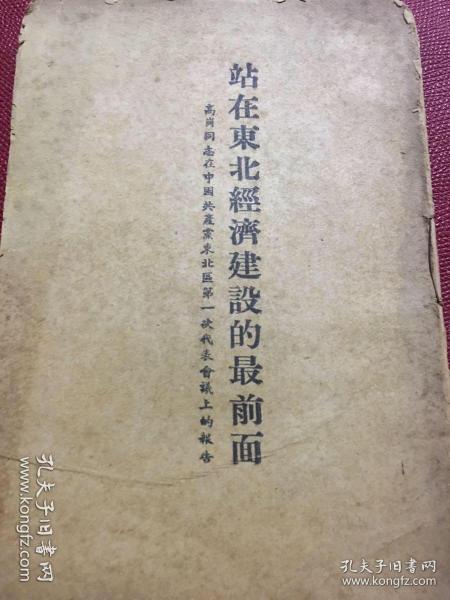 站在東北經濟建設的最前面
高崗同志在中國共產黨東北區第一次代表會議上的報告
孔夫子旧書网
www.kongfz.com
孔夫子旧書网
www.kongfz.com